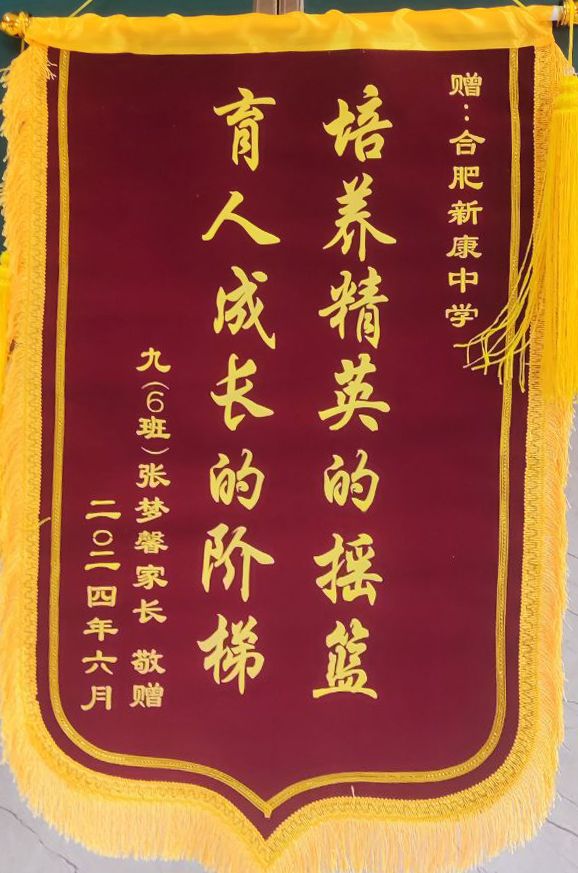 赠：合肥新康中学
培养精英的摇篮
育人成长的阶梯
九（6班）张梦馨家长 敬赠
二〇二四年六月